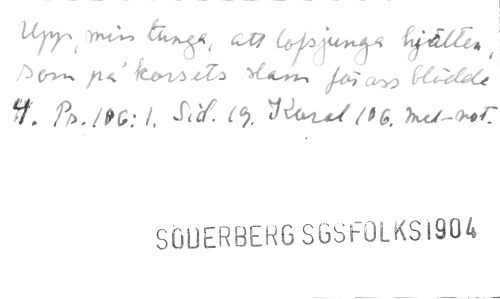 Upp, min tunga, att lofsjunga hjälten,
som på korsets stam för oss blödde
4. Ps. 106:1. Sid. 19. Koral 106. Mel-not.
SÖDERBERG SGSFOLKS1904